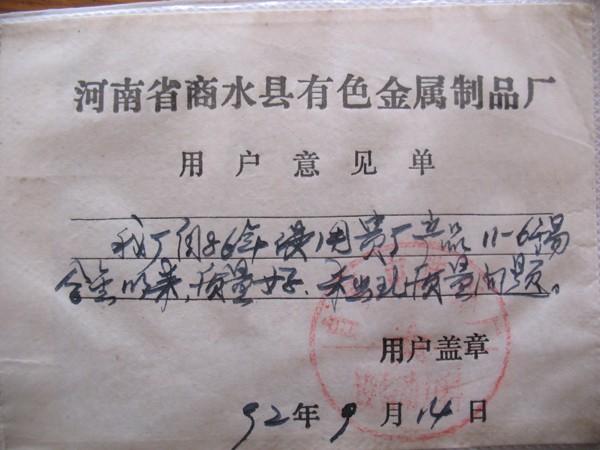 河南省商水县有色金属制品厂
用户意见单
我厂自86年使用贵厂产品11-6锡
合金以来,质量好,未出现质量问题。
用户盖章
92年9月14日